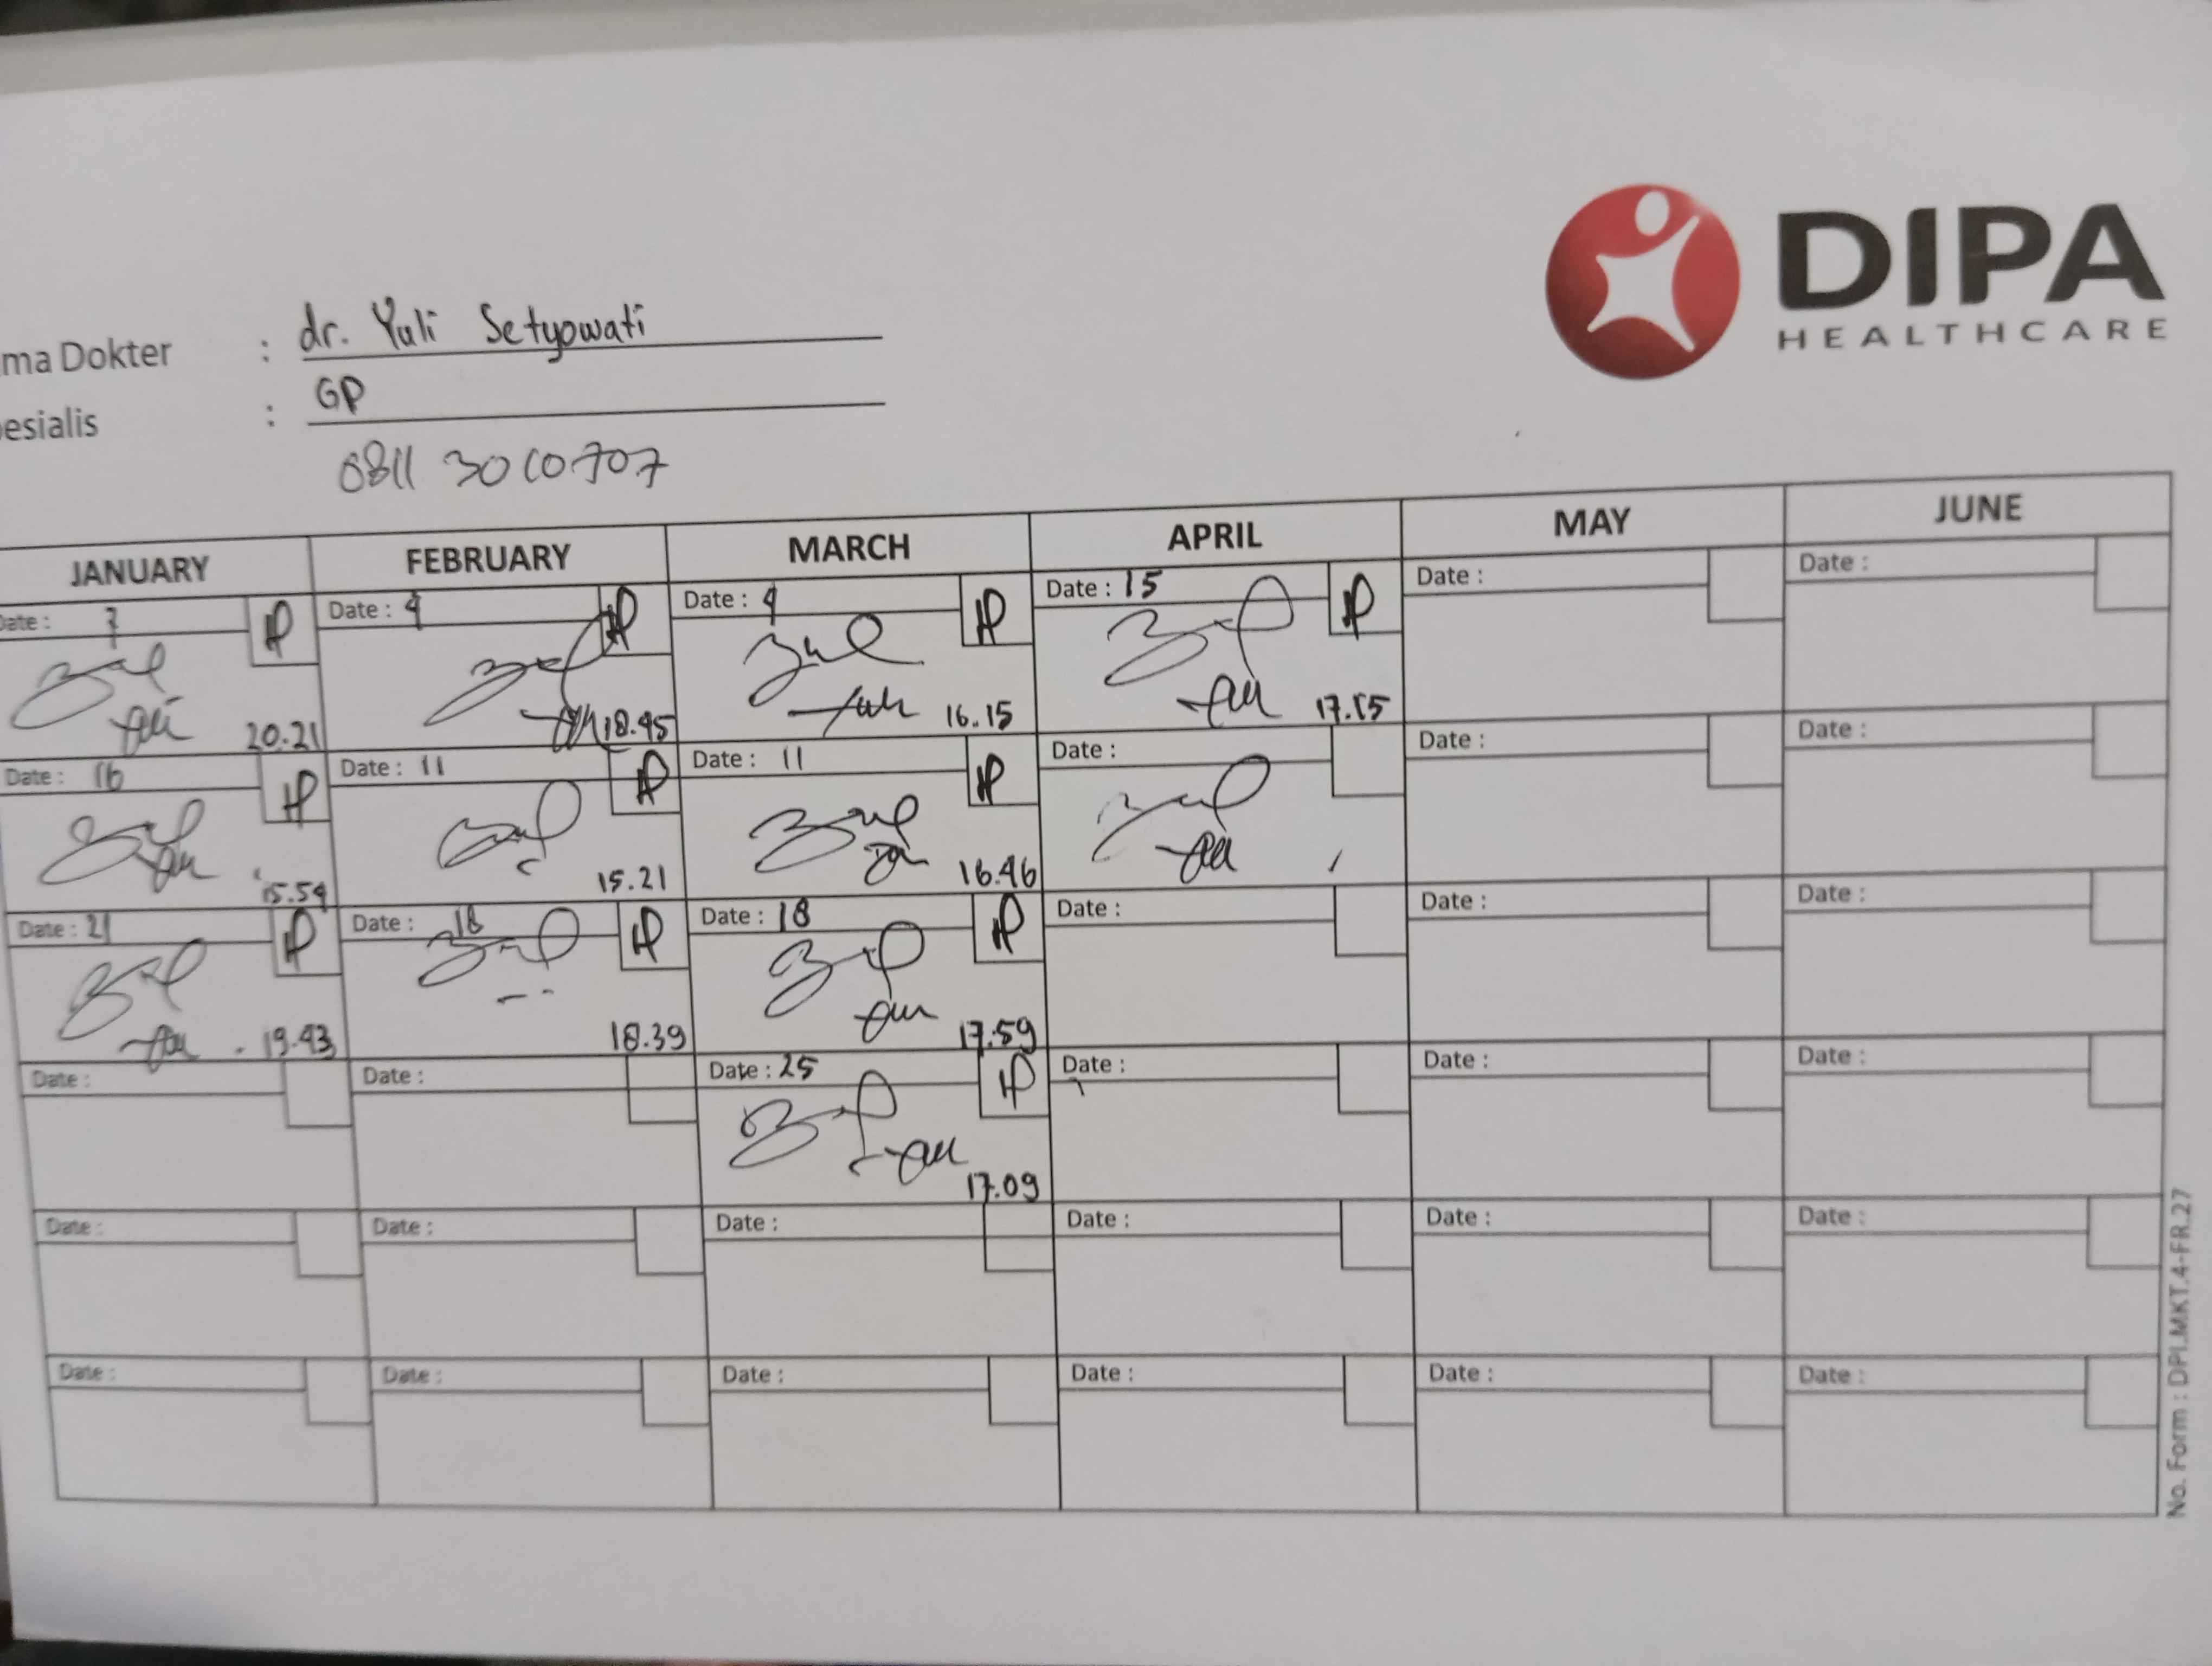 DIPA
HEALTHCARE
ma Dokter : dr. Yuli Setyowati
esialis : GP
0811 3010707
JANUARY FEBRUARY MARCH APRIL MAY JUNE
Date : 7 Date : 4 Date : 4 Date : 15 Date : Date :
20.21 18.45 16.15 17.15
Date : 16 Date : 11 Date : 11 Date : Date : Date :
15.54 15.21 16.46
Date : 21 Date : 18 Date : 18 Date : Date : Date :
19.43 18.39 17.59
Date : Date : Date : 25 Date : Date : Date :
17.09
Date : Date : Date : Date : Date : Date :
Date : Date : Date : Date : Date : Date :
No. Form : DPI.MKT.4-FR.27